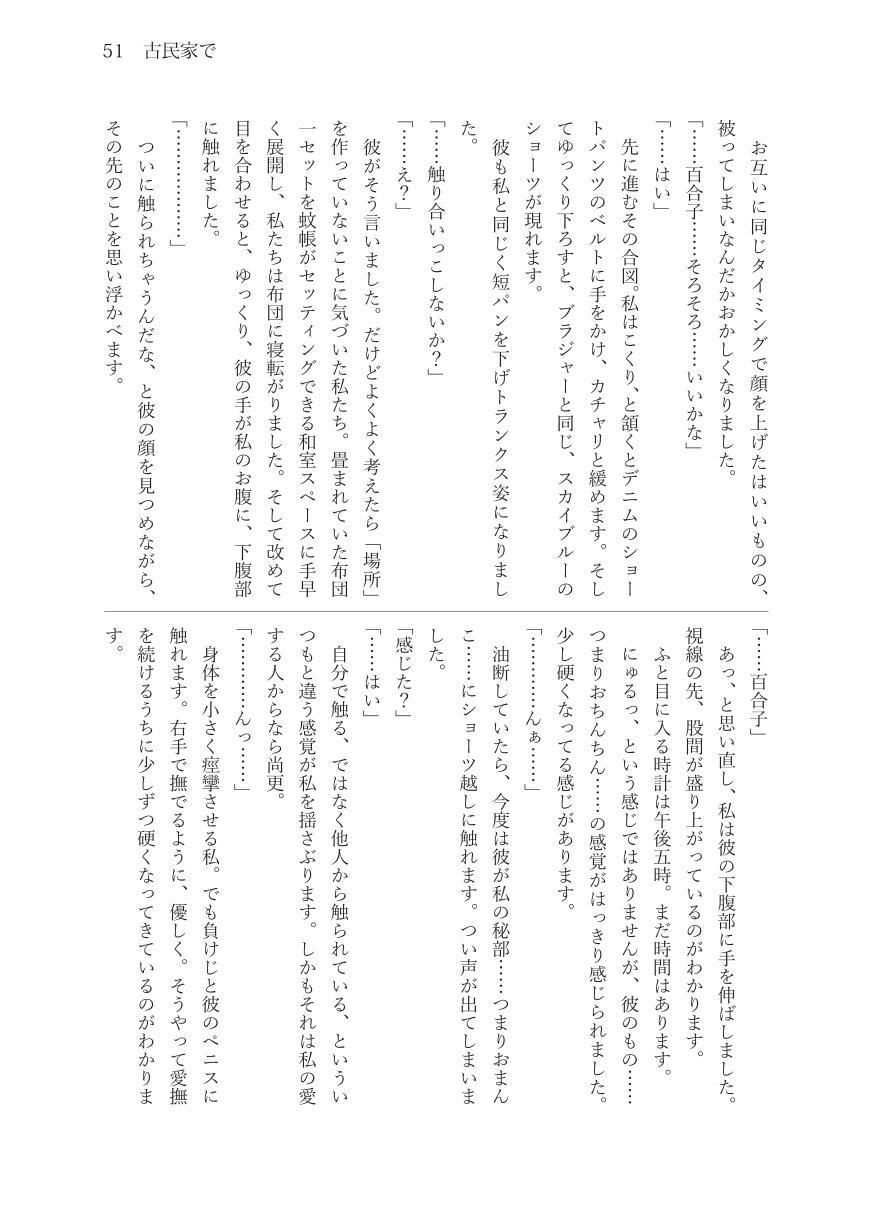 51　古民家で
　お互いに同じタイミングで顔を上げたはいいものの、
被ってしまいなんだかおかしくなりました。
「……百合子……そろそろ……いいかな」
「……はい」
　先に進むその合図。私はこくり、と頷くとデニムのショー
トパンツのベルトに手をかけ、カチャリと緩めます。そし
てゆっくり下ろすと、ブラジャーと同じ、スカイブルーの
ショーツが現れます。
　彼も私と同じく短パンを下げトランクス姿になりまし
た。
「……触り合いっこしないか？」
「……え？」
　彼がそう言いました。だけどよくよく考えたら「場所」
を作っていないことに気づいた私たち。畳まれていた布団
一セットを蚊帳がセッティングできる和室スペースに手早
く展開し、私たちは布団に寝転がりました。そして改めて
目を合わせると、ゆっくり、彼の手が私のお腹に、下腹部
に触れました。
「………………」
　ついに触られちゃうんだな、と彼の顔を見つめながら、
その先のことを思い浮かべます。
「……百合子」
　あっ、と思い直し、私は彼の下腹部に手を伸ばしました。
視線の先、股間が盛り上がっているのがわかります。
　ふと目に入る時計は午後五時。まだ時間はあります。
　にゅるっ、という感じではありませんが、彼のもの……
つまりおちんちん……の感覚がはっきり感じられました。
少し硬くなってる感じがあります。
「…………んぁ……」
　油断していたら、今度は彼が私の秘部……つまりおまん
こ……にショーツ越しに触れます。つい声が出てしまいま
した。
「感じた？」
「……はい」
　自分で触る、ではなく他人から触られている、というい
つもと違う感覚が私を揺さぶります。しかもそれは私の愛
する人からなら尚更。
「…………んっ……」
　身体を小さく痙攣させる私。でも負けじと彼のペニスに
触れます。右手で撫でるように、優しく。そうやって愛撫
を続けるうちに少しずつ硬くなってきているのがわかりま
す。